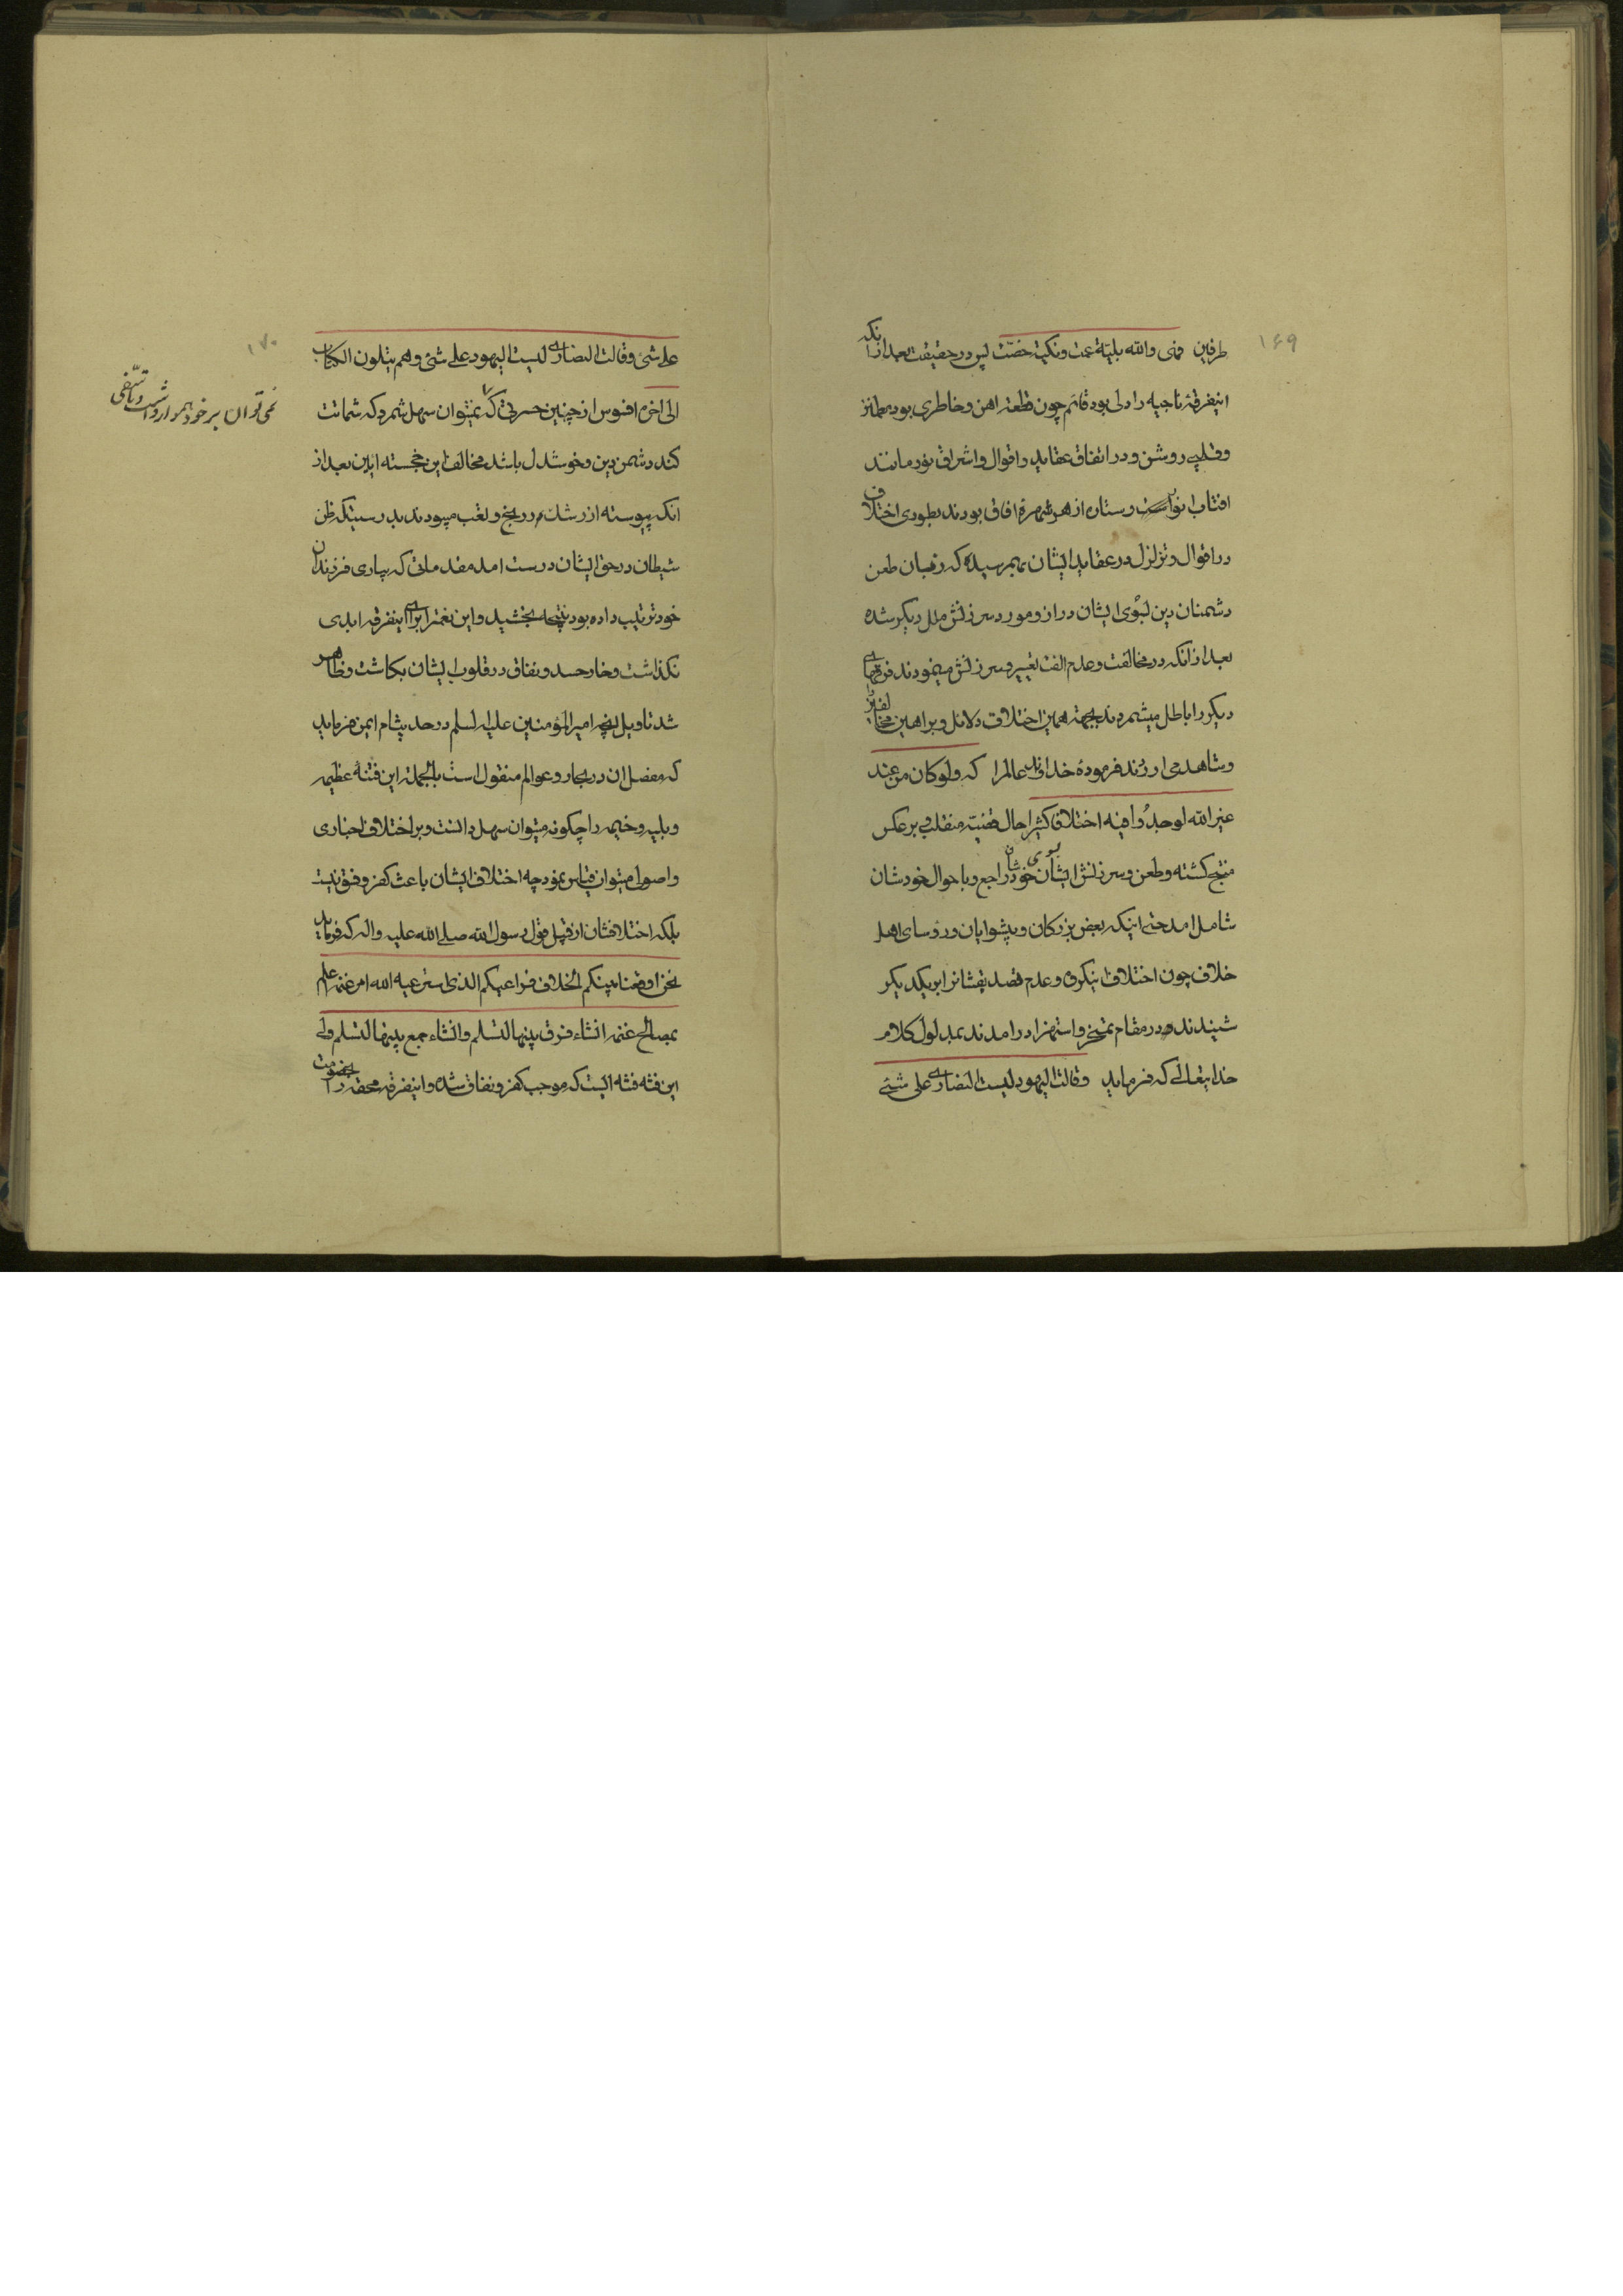 ۱۶۹
طرفین فهی والله بلیّة عمت ونکبة خصّت پس در حقیقت بعد از انکه
اینفرقهٔ ناجیه را دلی بود قائم چون قطعه اهن و خاطری بود مطمئن
و قلبی روشن و در اتفاق عقاید و اقوال و اشراق نور مانند
افتاب نور و ستاره از هر شهره افاق بودند بطوری اختلاف
در اقوال و تزلزل در عقاید ایشان بهم رسیده که زبان طعن
دشمنان دین بسوی ایشان دراز و مورد سرزنش ملل دیگر شده
بعد از انکه در مخالفت و عدم الفت تغییر و سرزنش مینمودند فرقهای
دیگر را باطل میشمردند بجهة همین اختلاف دلائل و براهین مخالفین را
و شاهد می اوردند فرمودهٔ خداوند عالم را که ولو کان من عند
غیر الله لوجدوا فیه اختلافا کثیرا حال قضیه منقلب و برعکس
منتج کشته و طعن و سرزنش ایشان بسوی خودشان راجع و باحوال خودشان
شامل امد حتی اینکه بعض بزرکان و پیشوایان و رؤسای اهل
خلاف چون اختلاف اینکروه و عدم قصد یقشانرا بر یکدیکر
شنیدند در مقام تمسخر و استهزا درامدند بمدلول کلام
خدایتعالی که فرماید وقالت الیهود لیست النصاری علی شئ
۱۷۰
علی شئ وقالت النصاری لیست الیهود علی شئ وهم یتلون الکتاب
الی اخره افسوس از چنین حسرتی که نمیتوان سهل شمرد که شماتت
نمی توان بر خود هموار داشت و تاسّفی
کند دشمن دین و خوشدل باشد مخالف این خجسته ایین بعد از
انکه پیوسته از رشکم در رنج و تعب میبودند بدرستیکه ظن
شیطان در حق ایشان درست امد مقدماتی که بیاری فرزندان
خود ترتیب داده بود نتیجه بخشید و این نعمترا برای اینفرقه ابدی
نکذاشت و خار حسد و نفاق در قلوب ایشان بکاشت و ظاهر
شد تاویل انچه امیرالمؤمنین علیه السلم در حدیث ایمن فرماید
که مفصل ان در بحار و عوالم منقول است بالجمله این فتنهٔ عظیمه
و بلیه وخیمه را چکونه میتوان سهل دانست و بر اختلاف اخباری
و اصولی میتوان قیاس نمود چه اختلاف ایشان باعث کفر و فسق نیست
بلکه اختلافشان از قبیل قول رسول الله صلی الله علیه واله که فرماید
نحن اوقعنا بینکم الخلاف فراعیکم الذی استرعیه الله امر غنمه اعلم
بمصالح غنمه انشاء فرق بینها لتسلم وانشاء جمع بینها لتسلم ولی
این فتنه فتنه ایست که موجب کفر و نفاق شده و اینفرقه محقه را بخصومت